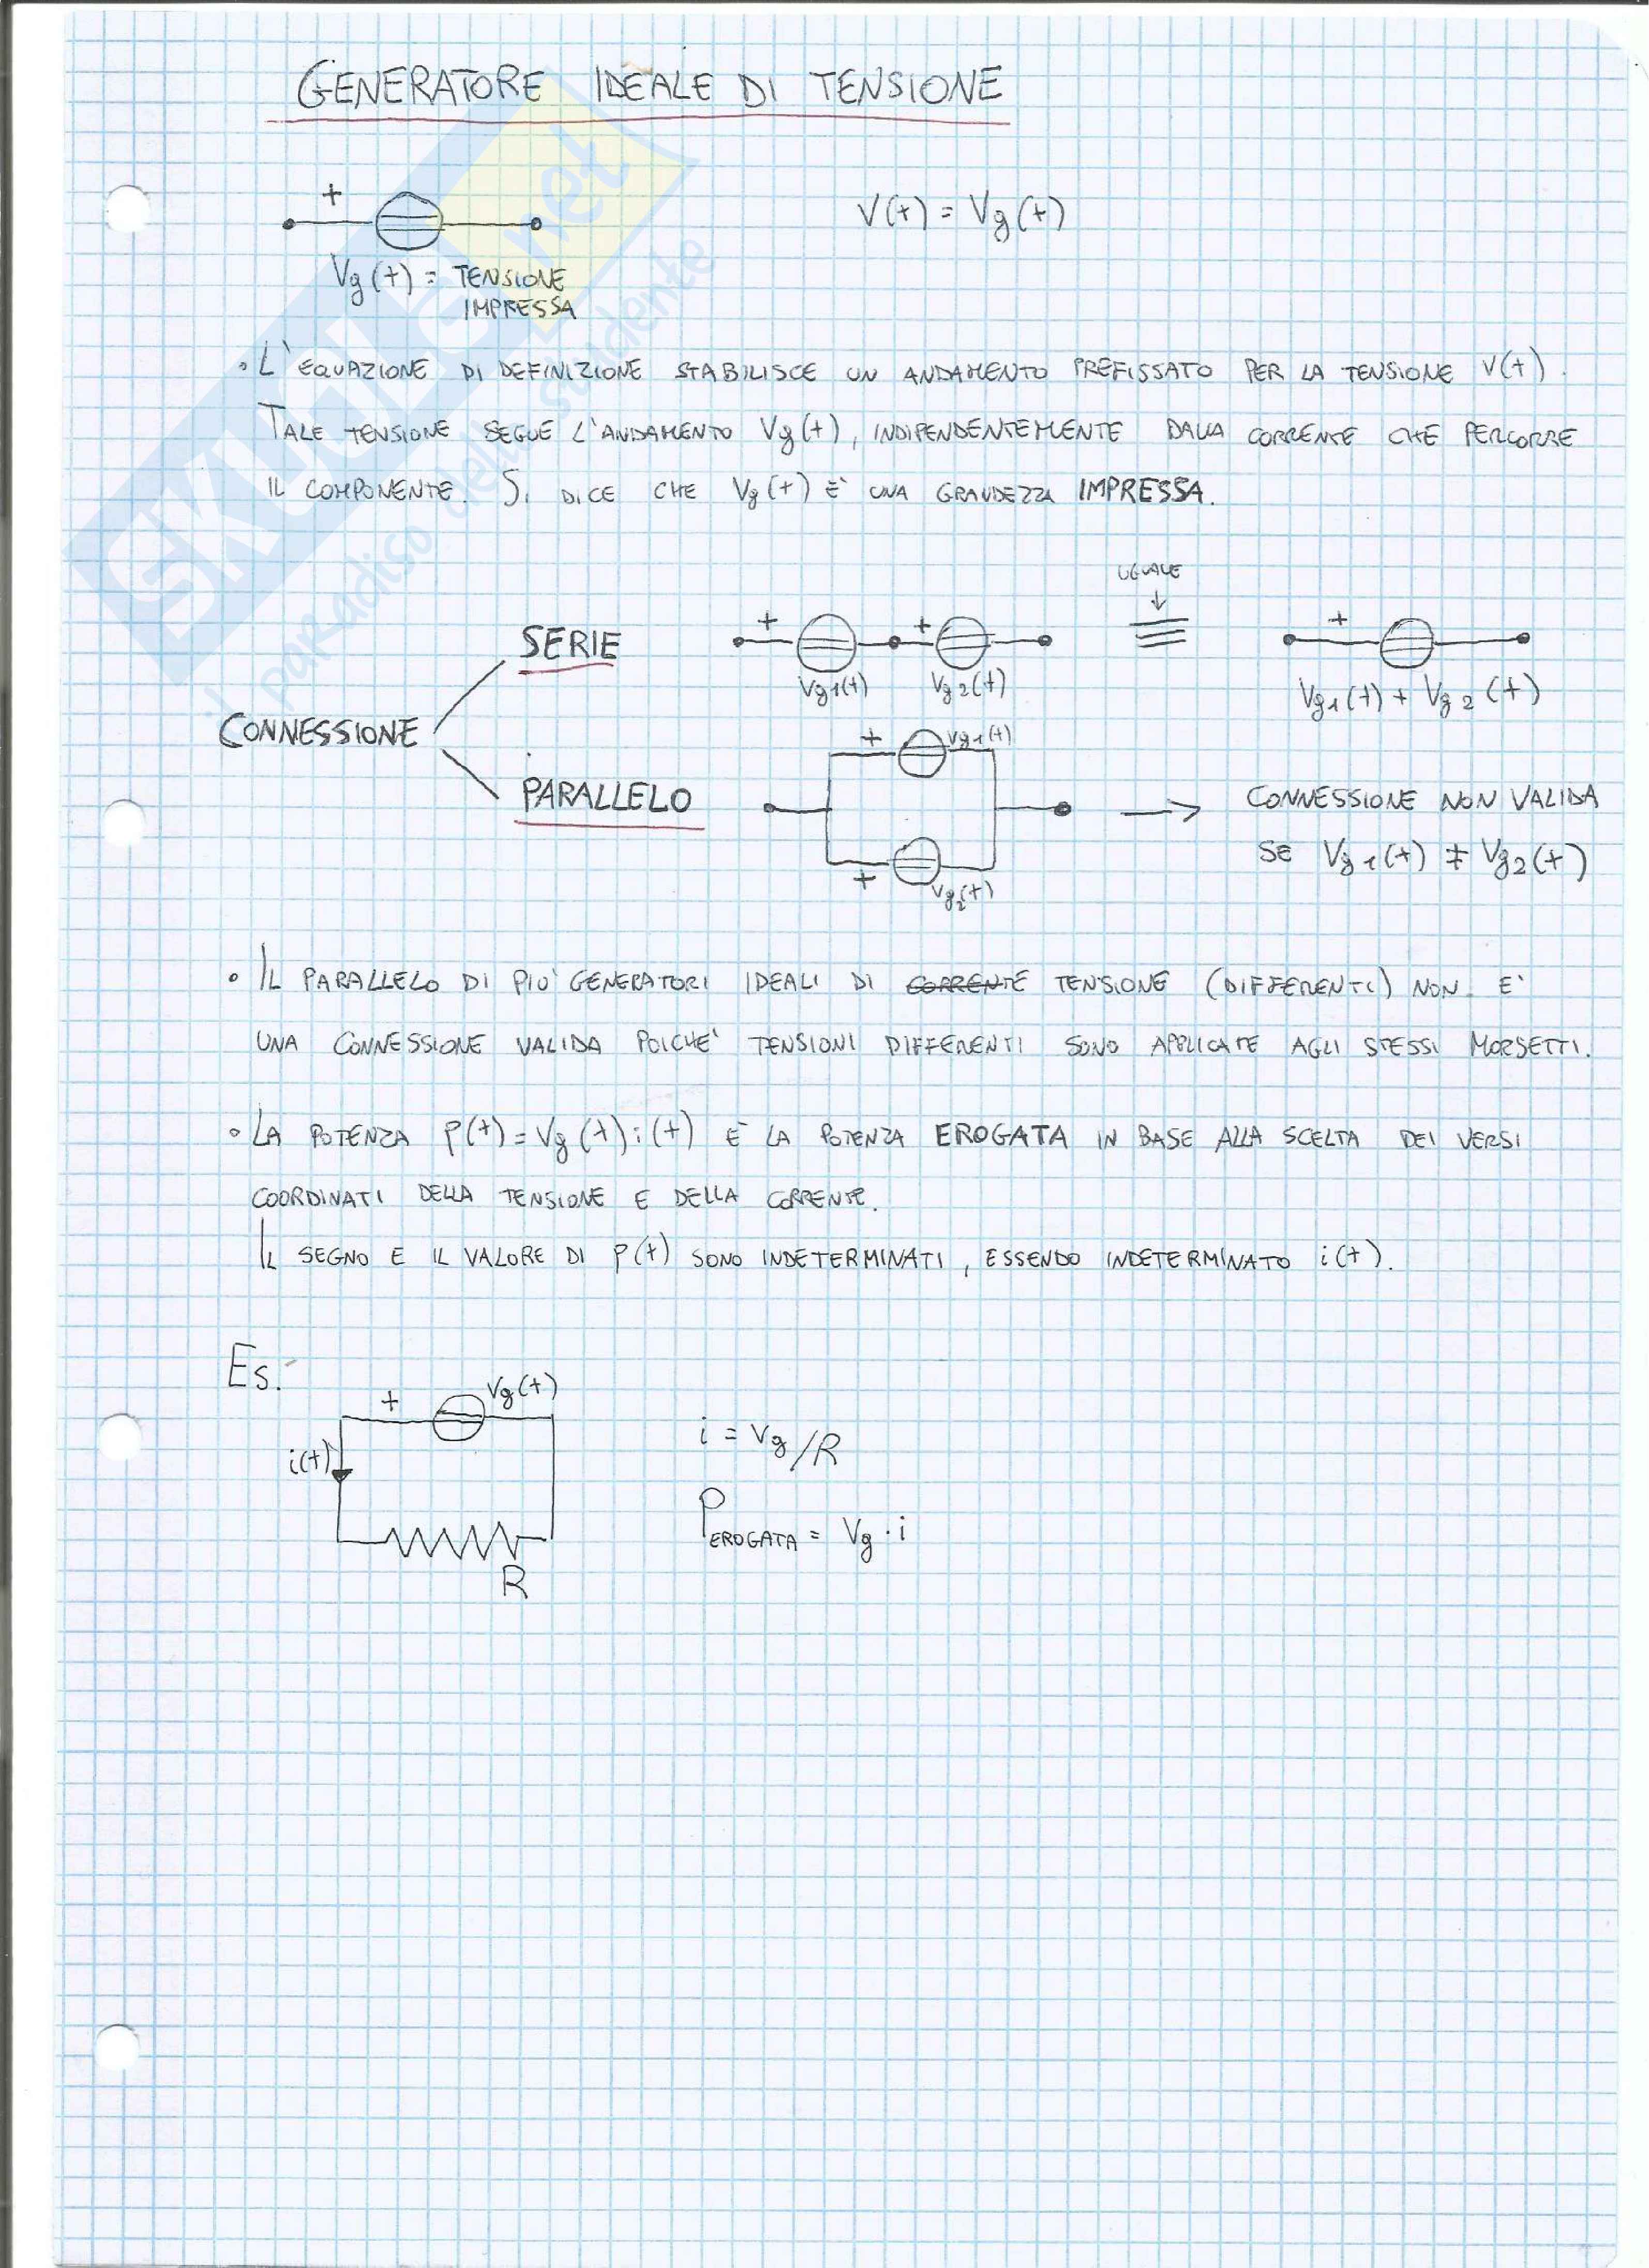 GENERATORE IDEALE DI TENSIONE
+
V(t) = Vg(t)
Vg(t) = TENSIONE
IMPRESSA
• L'EQUAZIONE DI DEFINIZIONE STABILISCE UN ANDAMENTO PREFISSATO PER LA TENSIONE V(t).
TALE TENSIONE SEGUE L'ANDAMENTO Vg(t), INDIPENDENTEMENTE DALLA CORRENTE CHE PERCORRE
IL COMPONENTE. SI DICE CHE Vg(t) E' UNA GRANDEZZA IMPRESSA.
UGUALE
↓
SERIE
+ +
≡
+
Vg1(t) Vg2(t)
Vg1(t) + Vg2(t)
CONNESSIONE
+ Vg1(t)
PARALLELO
→ CONNESSIONE NON VALIDA
SE Vg1(t) ≠ Vg2(t)
+ Vg2(t)
• IL PARALLELO DI PIU' GENERATORI IDEALI DI CORRENTE TENSIONE (DIFFERENTI) NON E'
UNA CONNESSIONE VALIDA POICHE' TENSIONI DIFFERENTI SONO APPLICATE AGLI STESSI MORSETTI.
• LA POTENZA p(t) = Vg(t) i(t) E' LA POTENZA EROGATA IN BASE ALLA SCELTA DEI VERSI
COORDINATI DELLA TENSIONE E DELLA CORRENTE.
IL SEGNO E IL VALORE DI p(t) SONO INDETERMINATI, ESSENDO INDETERMINATO i(t).
Es.
+ Vg(t)
i(t)
i = Vg/R
PEROGATA = Vg · i
R
SKUOLA.net
il paradiso dello studente